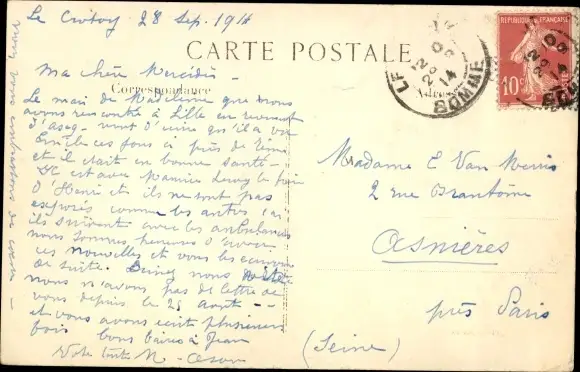 Le Crotoy 28 Sep. 1914
CARTE POSTALE
Correspondance
Adresse
REPUBLIQUE FRANÇAISE
10c
POSTES
LE
SOMME
Ma chère
Le mari de Madeleine que nous
avons rencontré à Lille en revenant
vient d'écrire qu'il a vu
Emile ces jours ci près de
et il était en bonne santé -
Il est avec Maurice Leroy le
d'Henri et ils ne sont pas
exposés comme les autres car
ils suivent avec les ambulances
nous sommes heureux d'avoir
ces nouvelles et vous les
de suite. nous
nous n'avons pas de lettre de
vous depuis le 25 Août -
et vous avons écrit plusieurs
fois bons baisers à Jean
Votre tante M -
vous embrassons de cœur -
Madame E Van
2 rue Brantôme
Asnières
près Paris
(Seine)